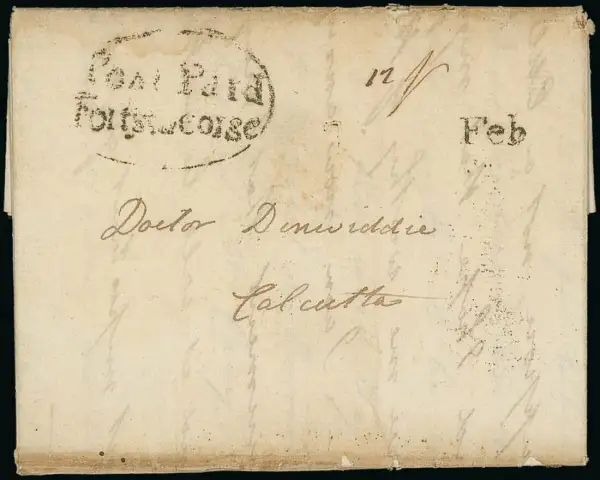 Post Paid
Fort St. George
12
Feb
Doctor Dinwiddie
Calcutta